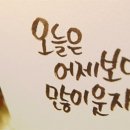 오늘은
어제보다
많이 웃자